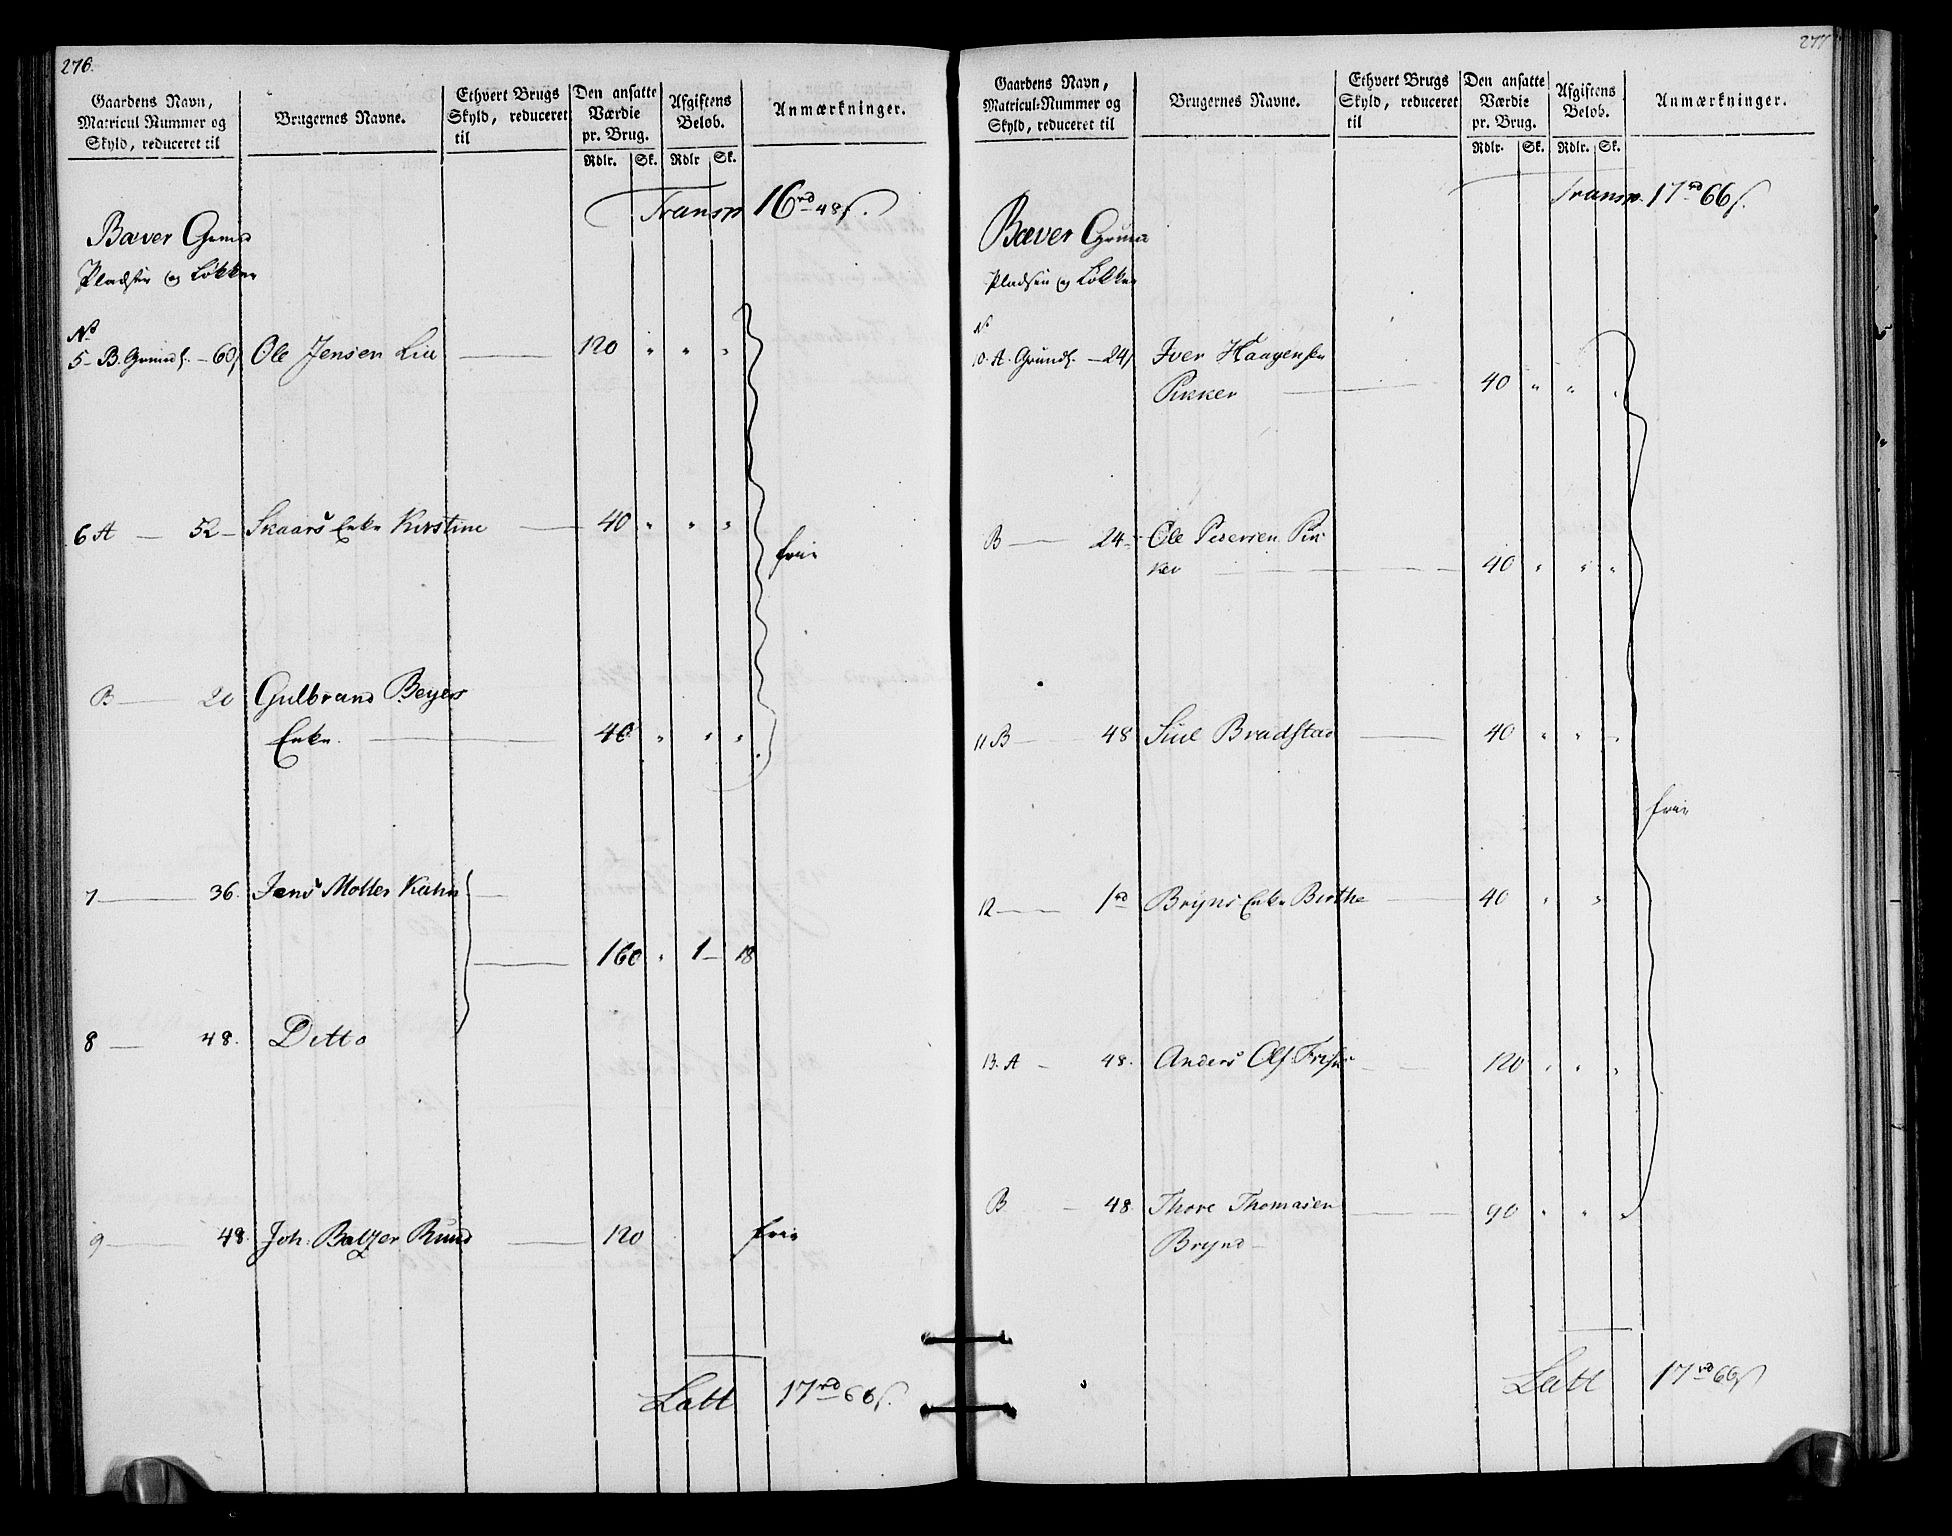 276.
Gaardens Navn,
Matricul Nummer og
Skyld, reduceret til
Brugernes Navne.
Ethvert Brugs
Skyld, reduceret
til
Den ansatte
Værdie
pr. Brug.
Rdlr. Sk.
Afgiftens
Beløb.
Rdlr Sk.
Anmærkninger.
Transp. 16rd 48s.
Bæver Grund
Pladser og Løkker
No
5 - B. Grunds. - 60s Ole Jensen Lie 120 " " "
6 A - 52 - Skaars Enke Kirstine 40 " " "
frie
B - 20 Gulbrand Beyers
Enke. 40 " " "
7 - 36. Jens Møller Kiehn
160 " 1 - 18
8 - 48. Ditto
9 - 48. Joh: Baltzer Rund 120 frie
Latt 17rd 66s.
277
Gaardens Navn,
Matricul-Nummer og
Skyld, reduceret til
Brugernes Navne.
Ethvert Brugs
Skyld, reduceret
til
Den ansatte
Værdie
pr. Brug.
Rdlr. Sk.
Afgiftens
Beløb.
Rdlr. Sk.
Anmærkninger.
Transp. 17rd 66s.
Bæver Grund
Pladser og Løkker
No
10. A. Grunds. - 24s Iver Haagensen
Pikker 40 " " "
B - 24 - Ole Petersen Pik-
ker 40 " " "
11 B - 48 Siul Bradstad 40 " " "
frie
12 - 1rd Bryns Enke Birthe 40 " "
13. A - 48. Anders Ols: 120 " " "
B - 48. Thore Thomasen 90 " " "
Brynd
Latt 17rd 66s